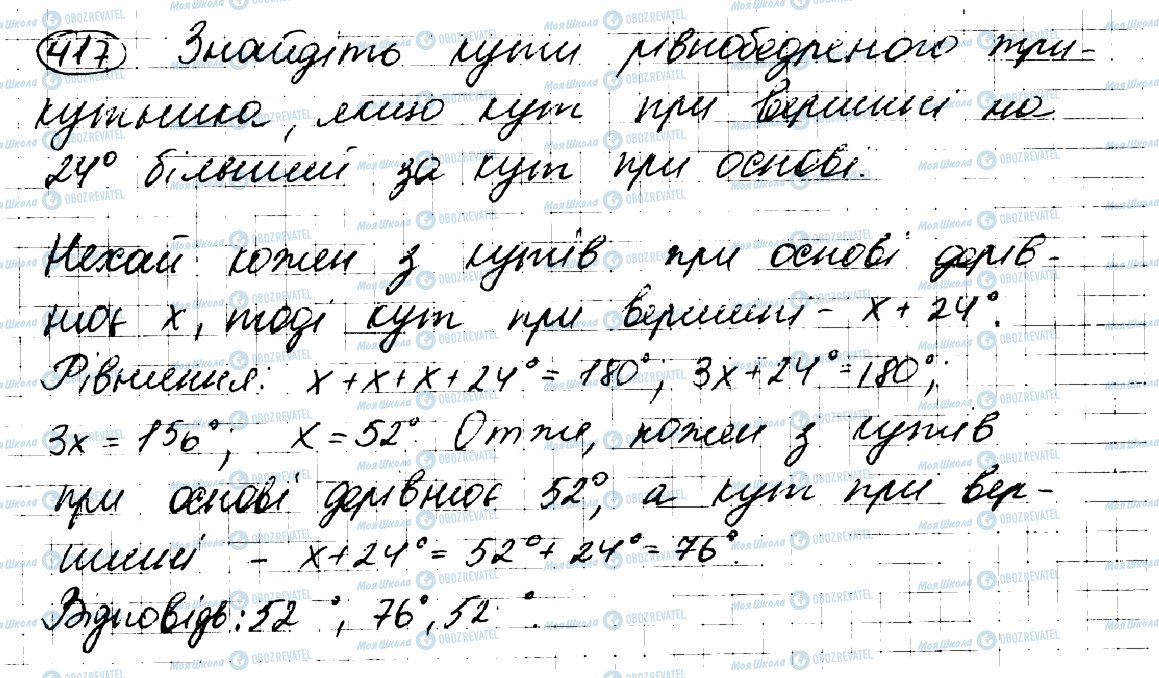 417 Знайдіть кути рівнобедреного три-
кутника, якщо кут при вершині на
24° більший за кут при основі.
Нехай кожен з кутів при основі дорів-
нює x, тоді кут при вершині - x + 24°.
Рівняння: x + x + x + 24° = 180°; 3x + 24° = 180°;
3x = 156°; x = 52° Отже, кожен з кутів
при основі дорівнює 52°, а кут при вер-
шині - x + 24° = 52° + 24° = 76°.
Відповідь: 52°, 76°, 52°.